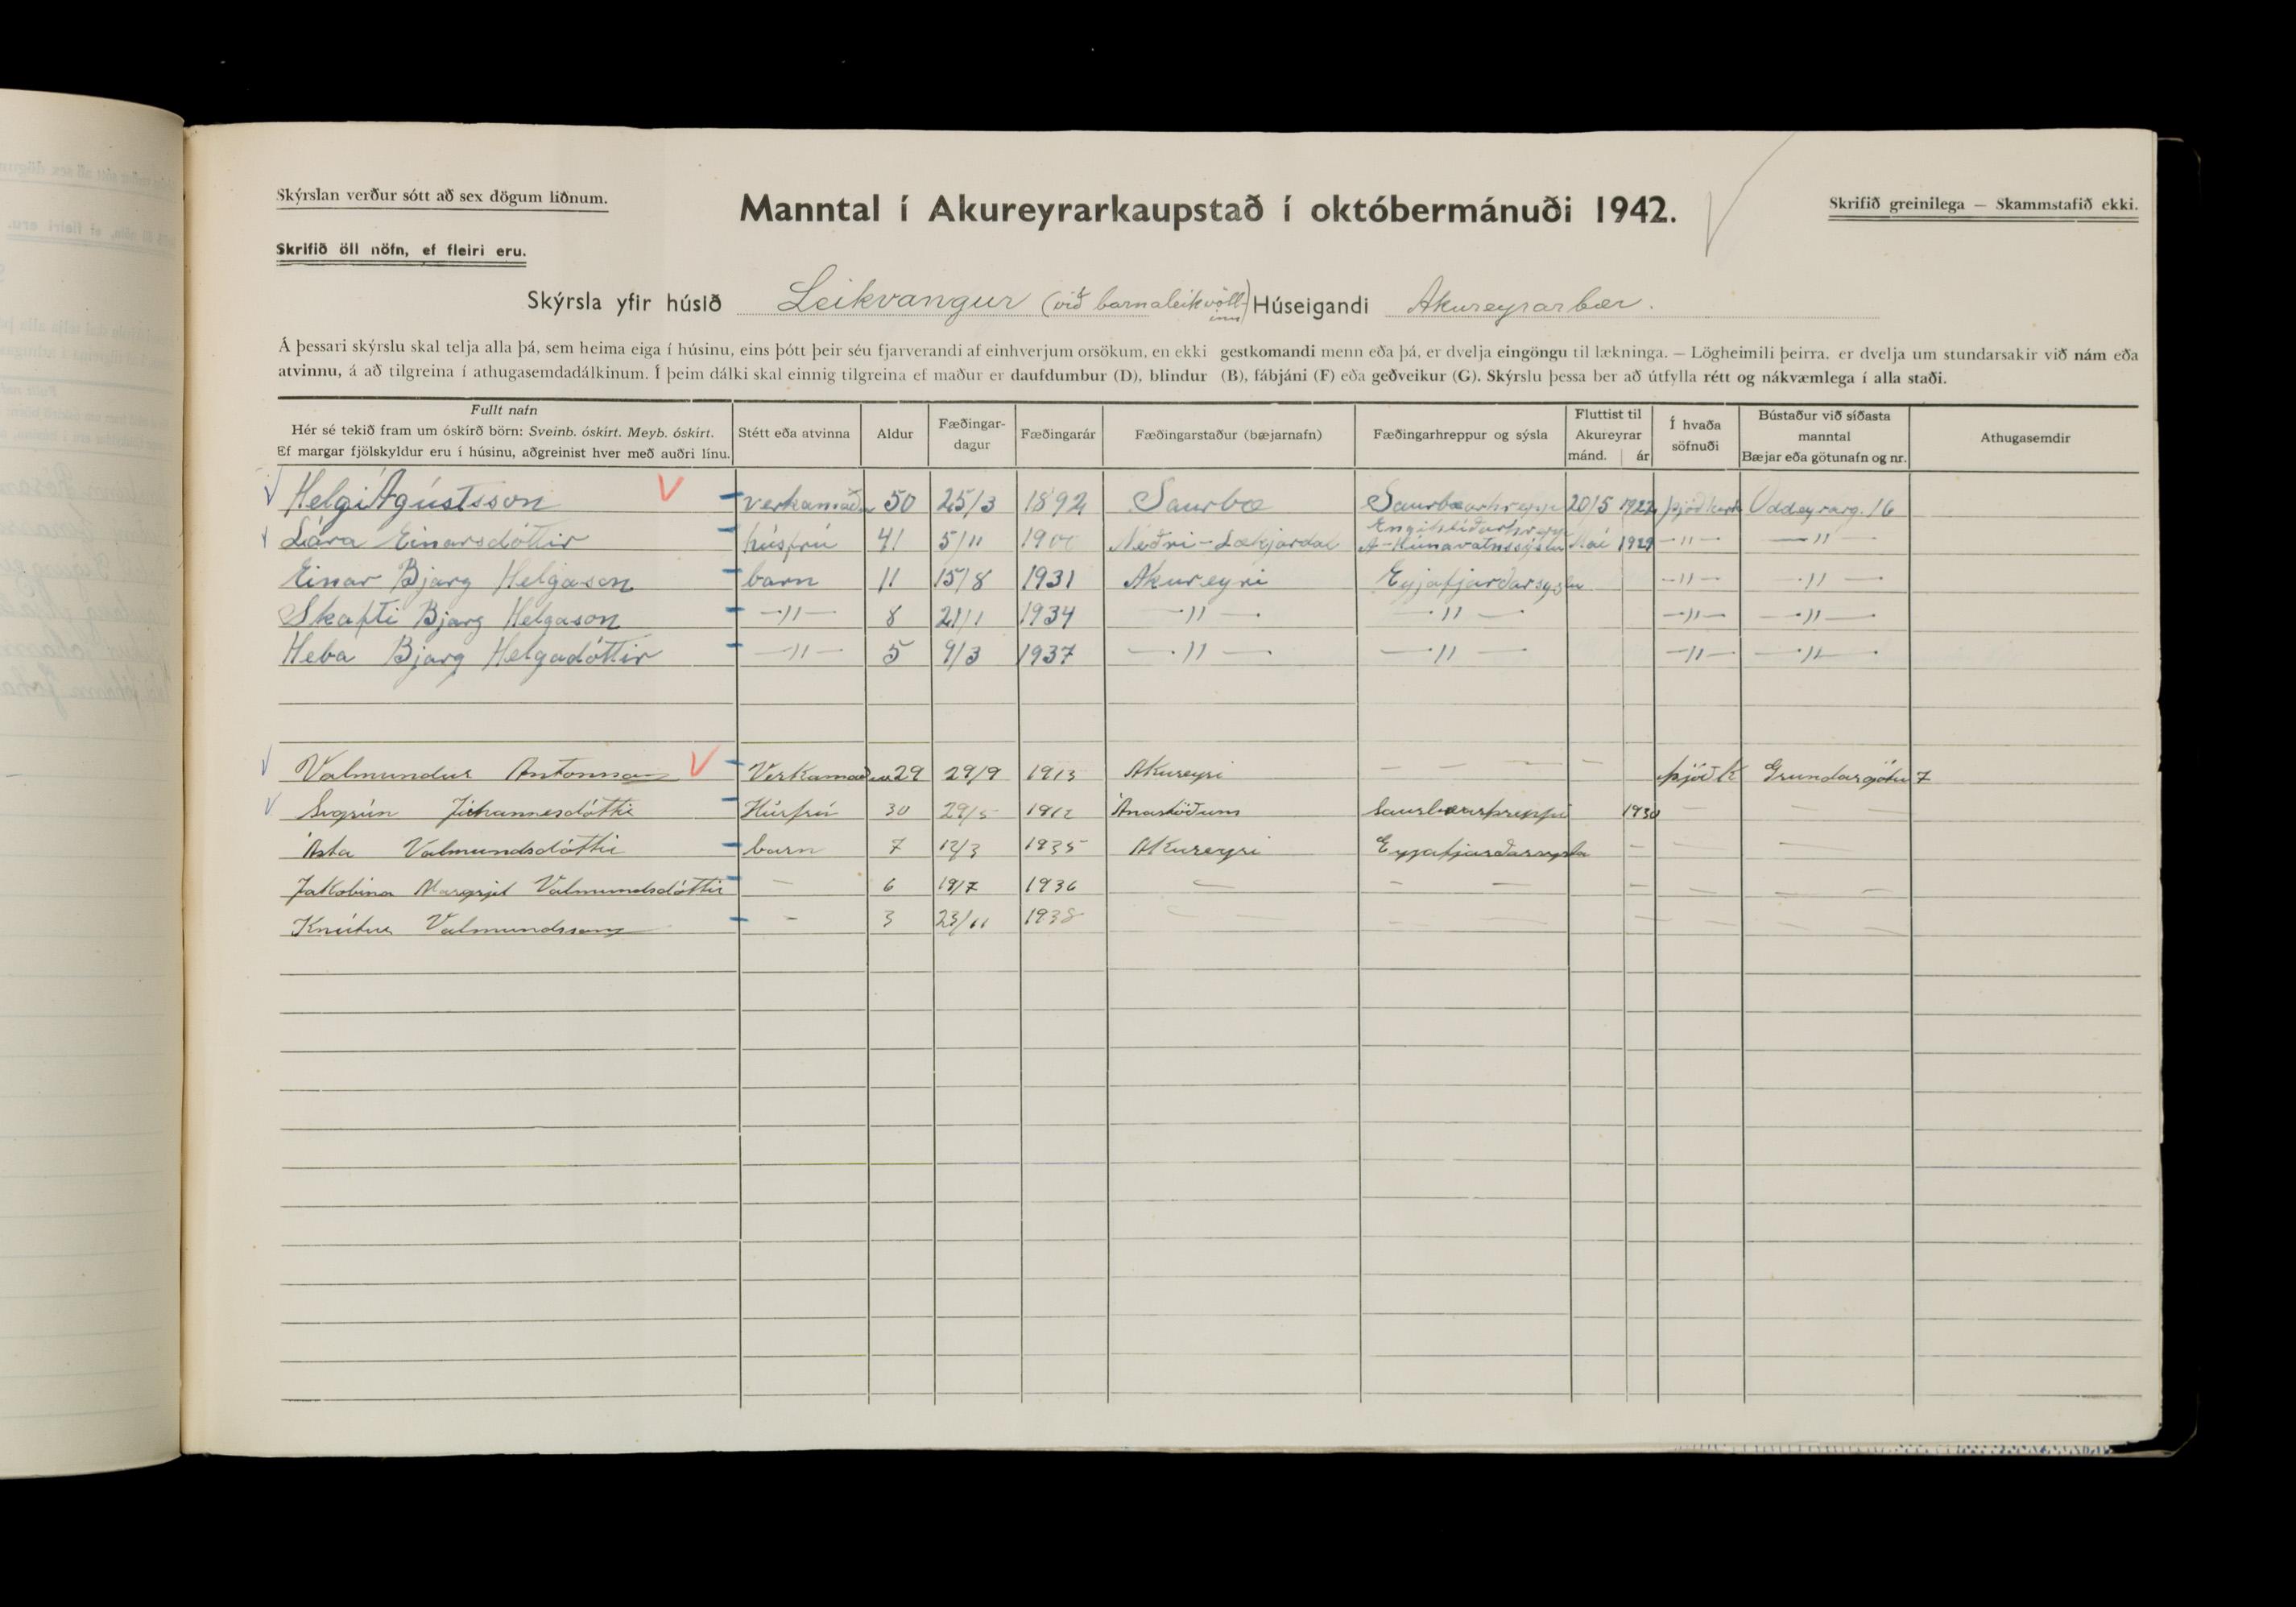 Skýrslan verður sótt að sex dögum liðnum.
Manntal í Akureyrarkaupstað í októbermánuði 1942.
Skrifið greinilega — Skammstafið ekki.
Skrifið öll nöfn, ef fleiri eru.
Skýrsla yfir húsið Leikvangur (við barnaleikvöllinn) Húseigandi Akureyrarbær.
Á þessari skýrslu skal telja alla þá, sem heima eiga í húsinu, eins þótt þeir séu fjarverandi af einhverjum orsökum, en ekki gestkomandi menn eða þá, er dvelja eingöngu til lækninga. — Lögheimili þeirra. er dvelja um stundarsakir við nám eða
atvinnu, á að tilgreina í athugasemdadálkinum. Í þeim dálki skal einnig tilgreina ef maður er daufdumbur (D), blindur (B), fábjáni (F) eða geðveikur (G). Skýrslu þessa ber að útfylla rétt og nákvæmlega í alla staði.
Fullt nafn
Hér sé tekið fram um óskírð börn: Sveinb. óskírt. Meyb. óskírt.
Ef margar fjölskyldur eru í húsinu, aðgreinist hver með auðri línu.
Stétt eða atvinna
Aldur
Fæðingar-
dagur
Fæðingarár
Fæðingarstaður (bæjarnafn)
Fæðingarhreppur og sýsla
Fluttist til
Akureyrar
mánd. ár
Í hvaða
söfnuði
Bústaður við síðasta
manntal
Bæjar eða götunafn og nr.
Athugasemdir
Helgi Ágústsson verkamaður 50 25/3 1892 Saurbæ Saurbæarhreppi 20/5 1922 þjóðkirk Oddeyrarg. 16
Lára Einarsdóttir húsfrú 41 5/11 1900 Neðri-Lækjardal Engihlíðarhrepp A-Húnavatnssýslu Maí 1929 —〃— —〃—
Einar Bjarg Helgason barn 11 15/8 1931 Akureyri Eyjafjarðarsýslu —〃— —〃—
Skafti Bjarg Helgason —〃— 8 21/1 1934 —〃— —〃— —〃— —〃—
Heba Bjarg Helgadóttir —〃— 5 9/3 1937 —〃— —〃— —〃— —〃—
Valmundur Antonsson Verkamaður 29 29/9 1913 Akureyri — — — — þjóðk Grundargötu 7
Sigrún Jóhannesdóttir Húsfrú 30 29/5 1912 Ánastöðum Saurbæarhreppi 1930 — — —
Ásta Valmundsdóttir barn 7 12/3 1935 Akureyri Eyjafjarðarsýsla — — —
Jakobína Margrjet Valmundsdóttir — 6 19/7 1936 — — — — — — —
Knútur Valmundsson — 3 23/11 1938 — — — — — — — —